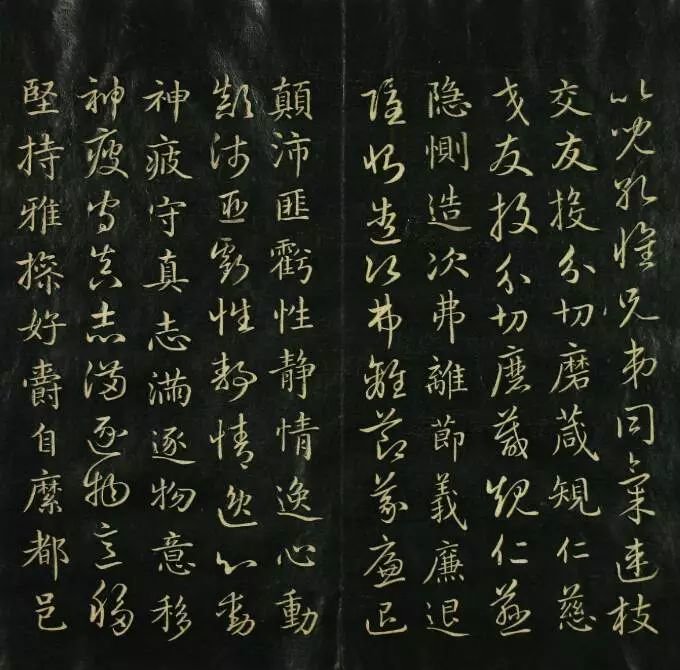 比兒孔懷兄弟同氣連枝
交友投分切磨箴規仁慈
交友投分切磨箴規仁慈
隱惻造次弗離節義廉退
隱惻造次弗離節義廉退
顛沛匪虧性静情逸心動
顛沛匪虧性静情逸心動
神疲守真志滿逐物意移
神疲守真志滿逐物意移
堅持雅操好爵自縻都邑